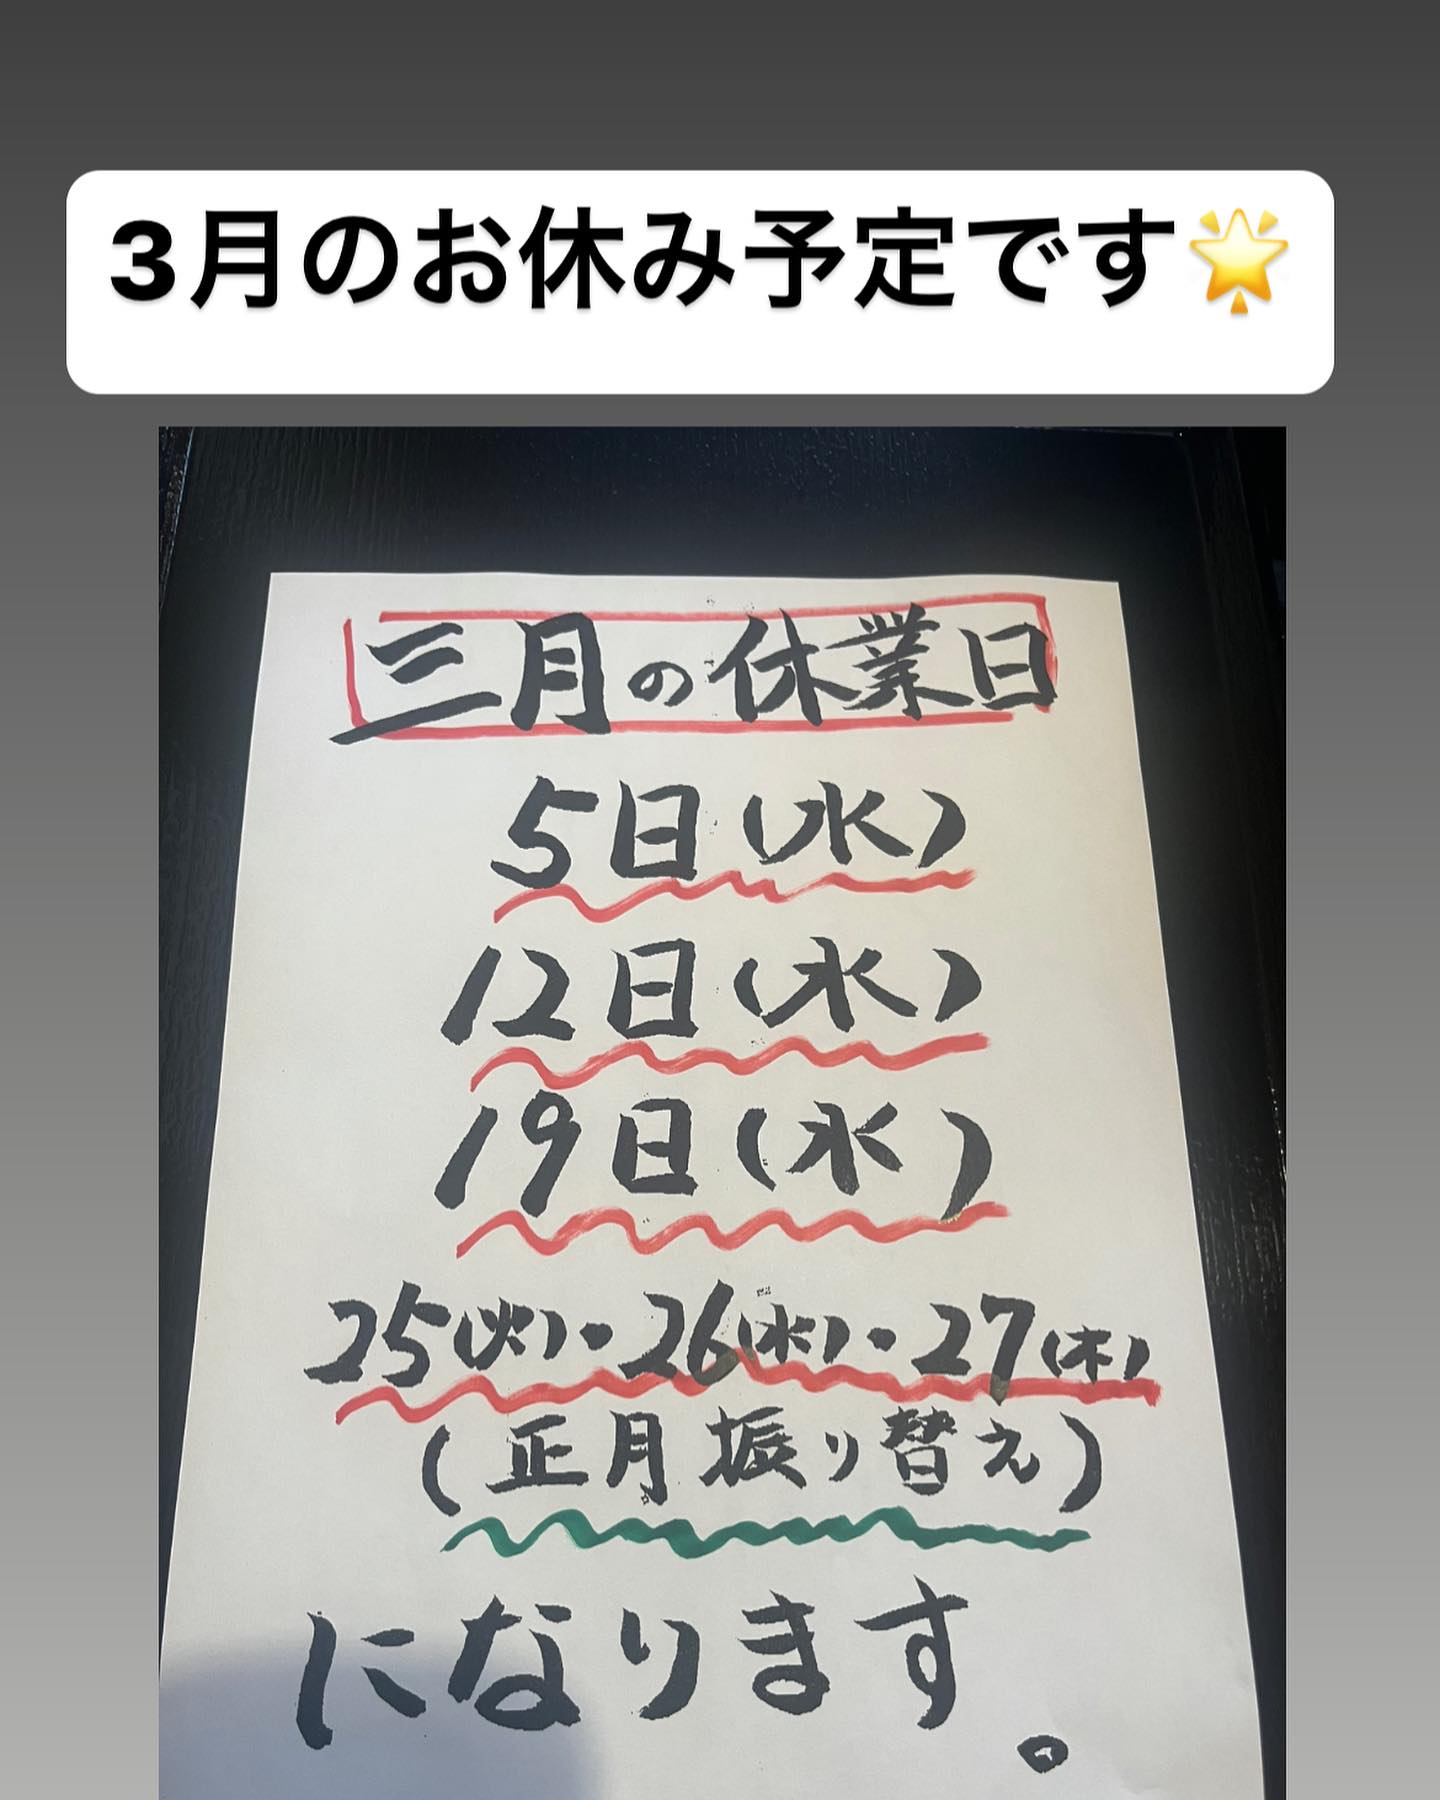 3月のお休み予定です🌟
三月の休業日
5日(水)
12日(水)
19日(水)
25(火)・26(水)・27(木)
(正月振り替え)
になります。